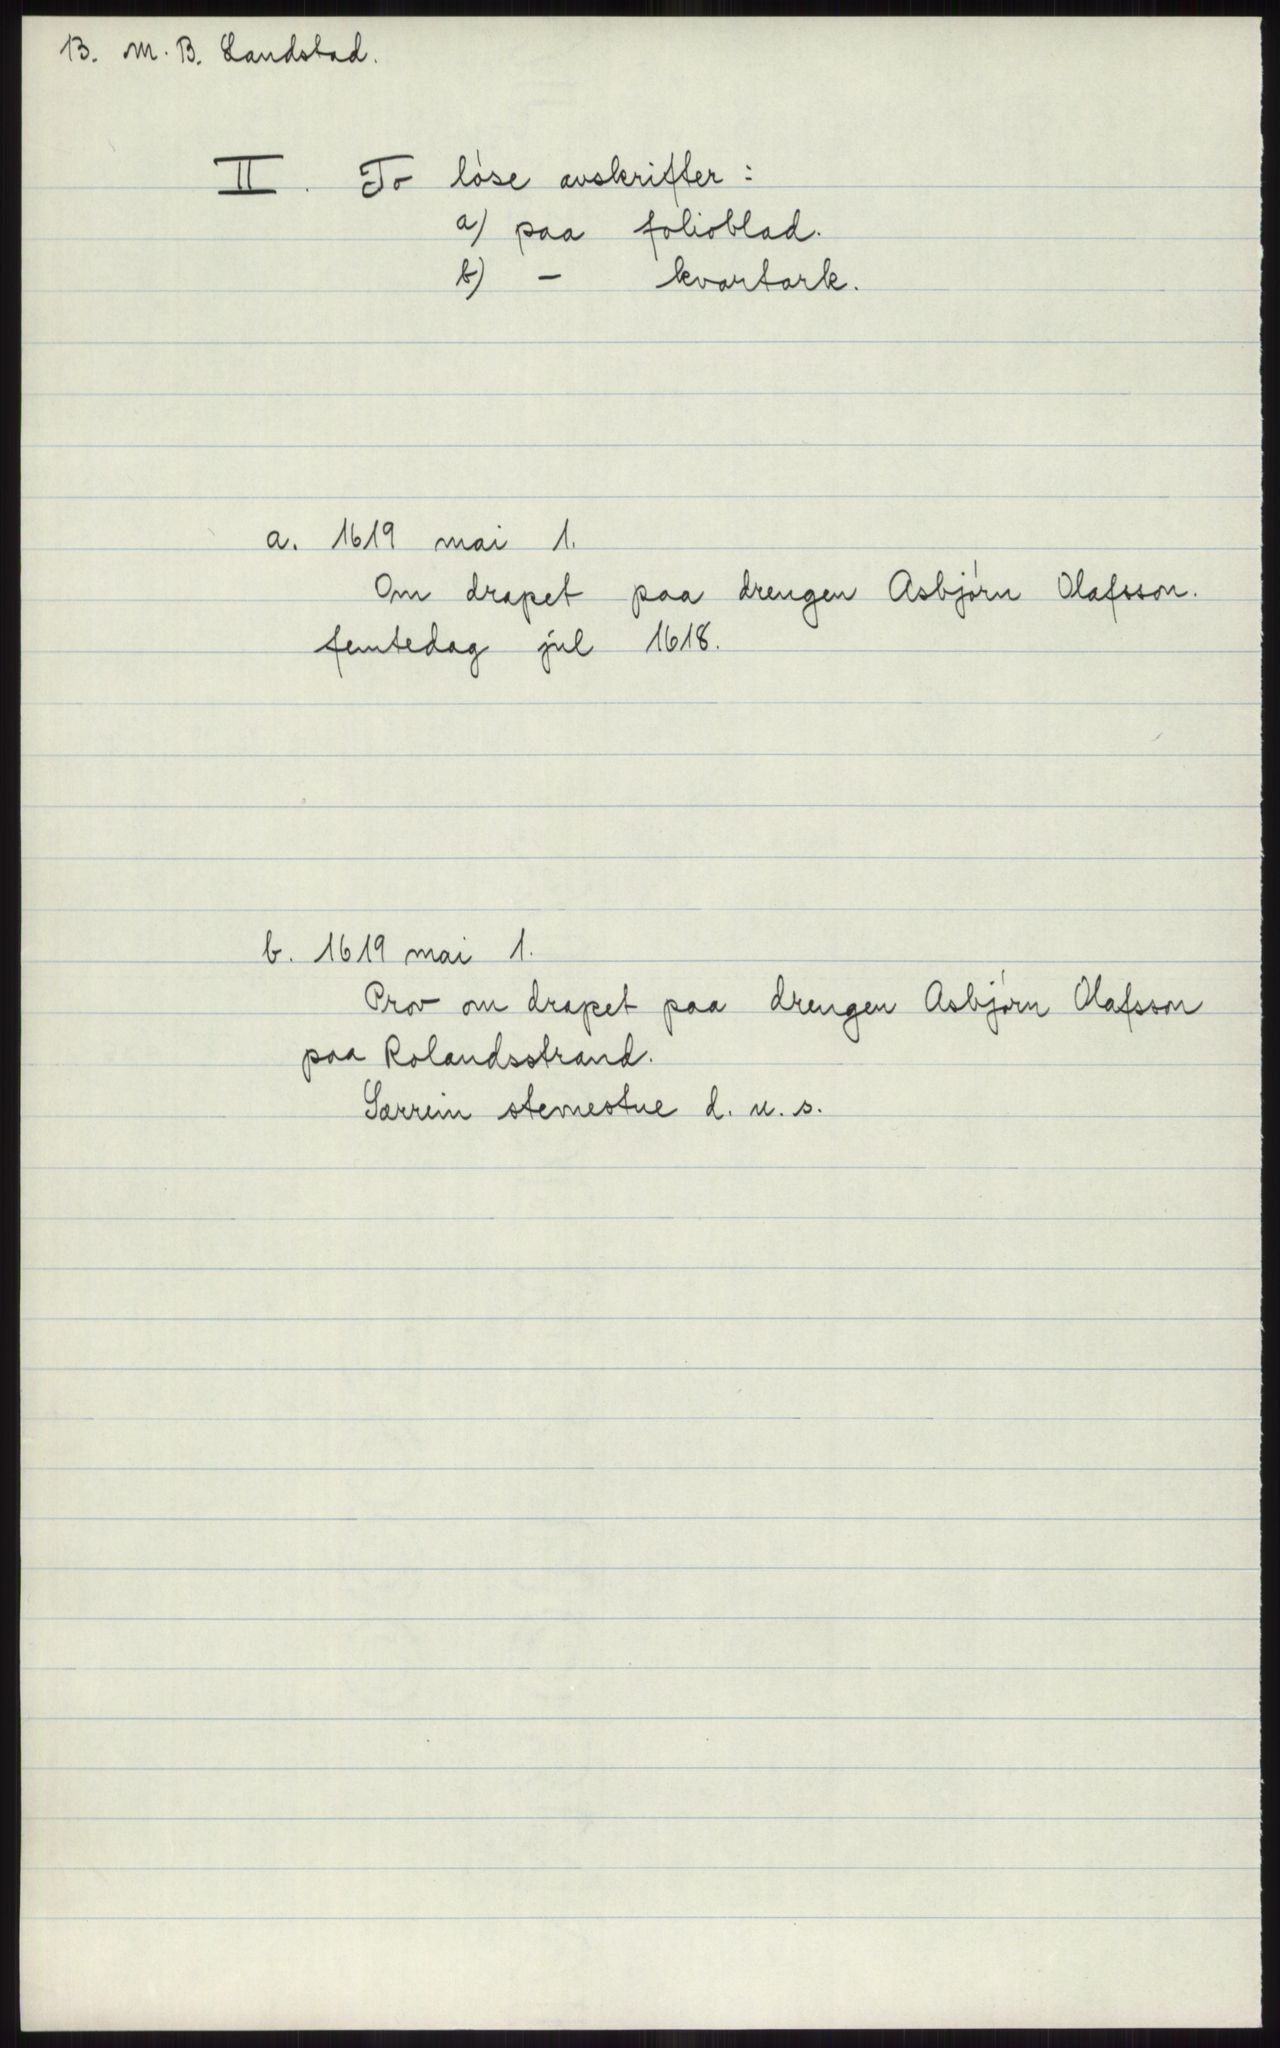 B. M. B. Landstad.
II. To löse avskrifter:
a) paa folioblad.
b) - kvartark.
a. 1619 mai 1.
Om drapet paa drengen Asbjörn Olafsson.
femtedag jul 1618.
b. 1619 mai 1.
Prov om drapet paa drengen Asbjörn Olafsson
paa Rolandsstrand.
stemestue d. u. s.